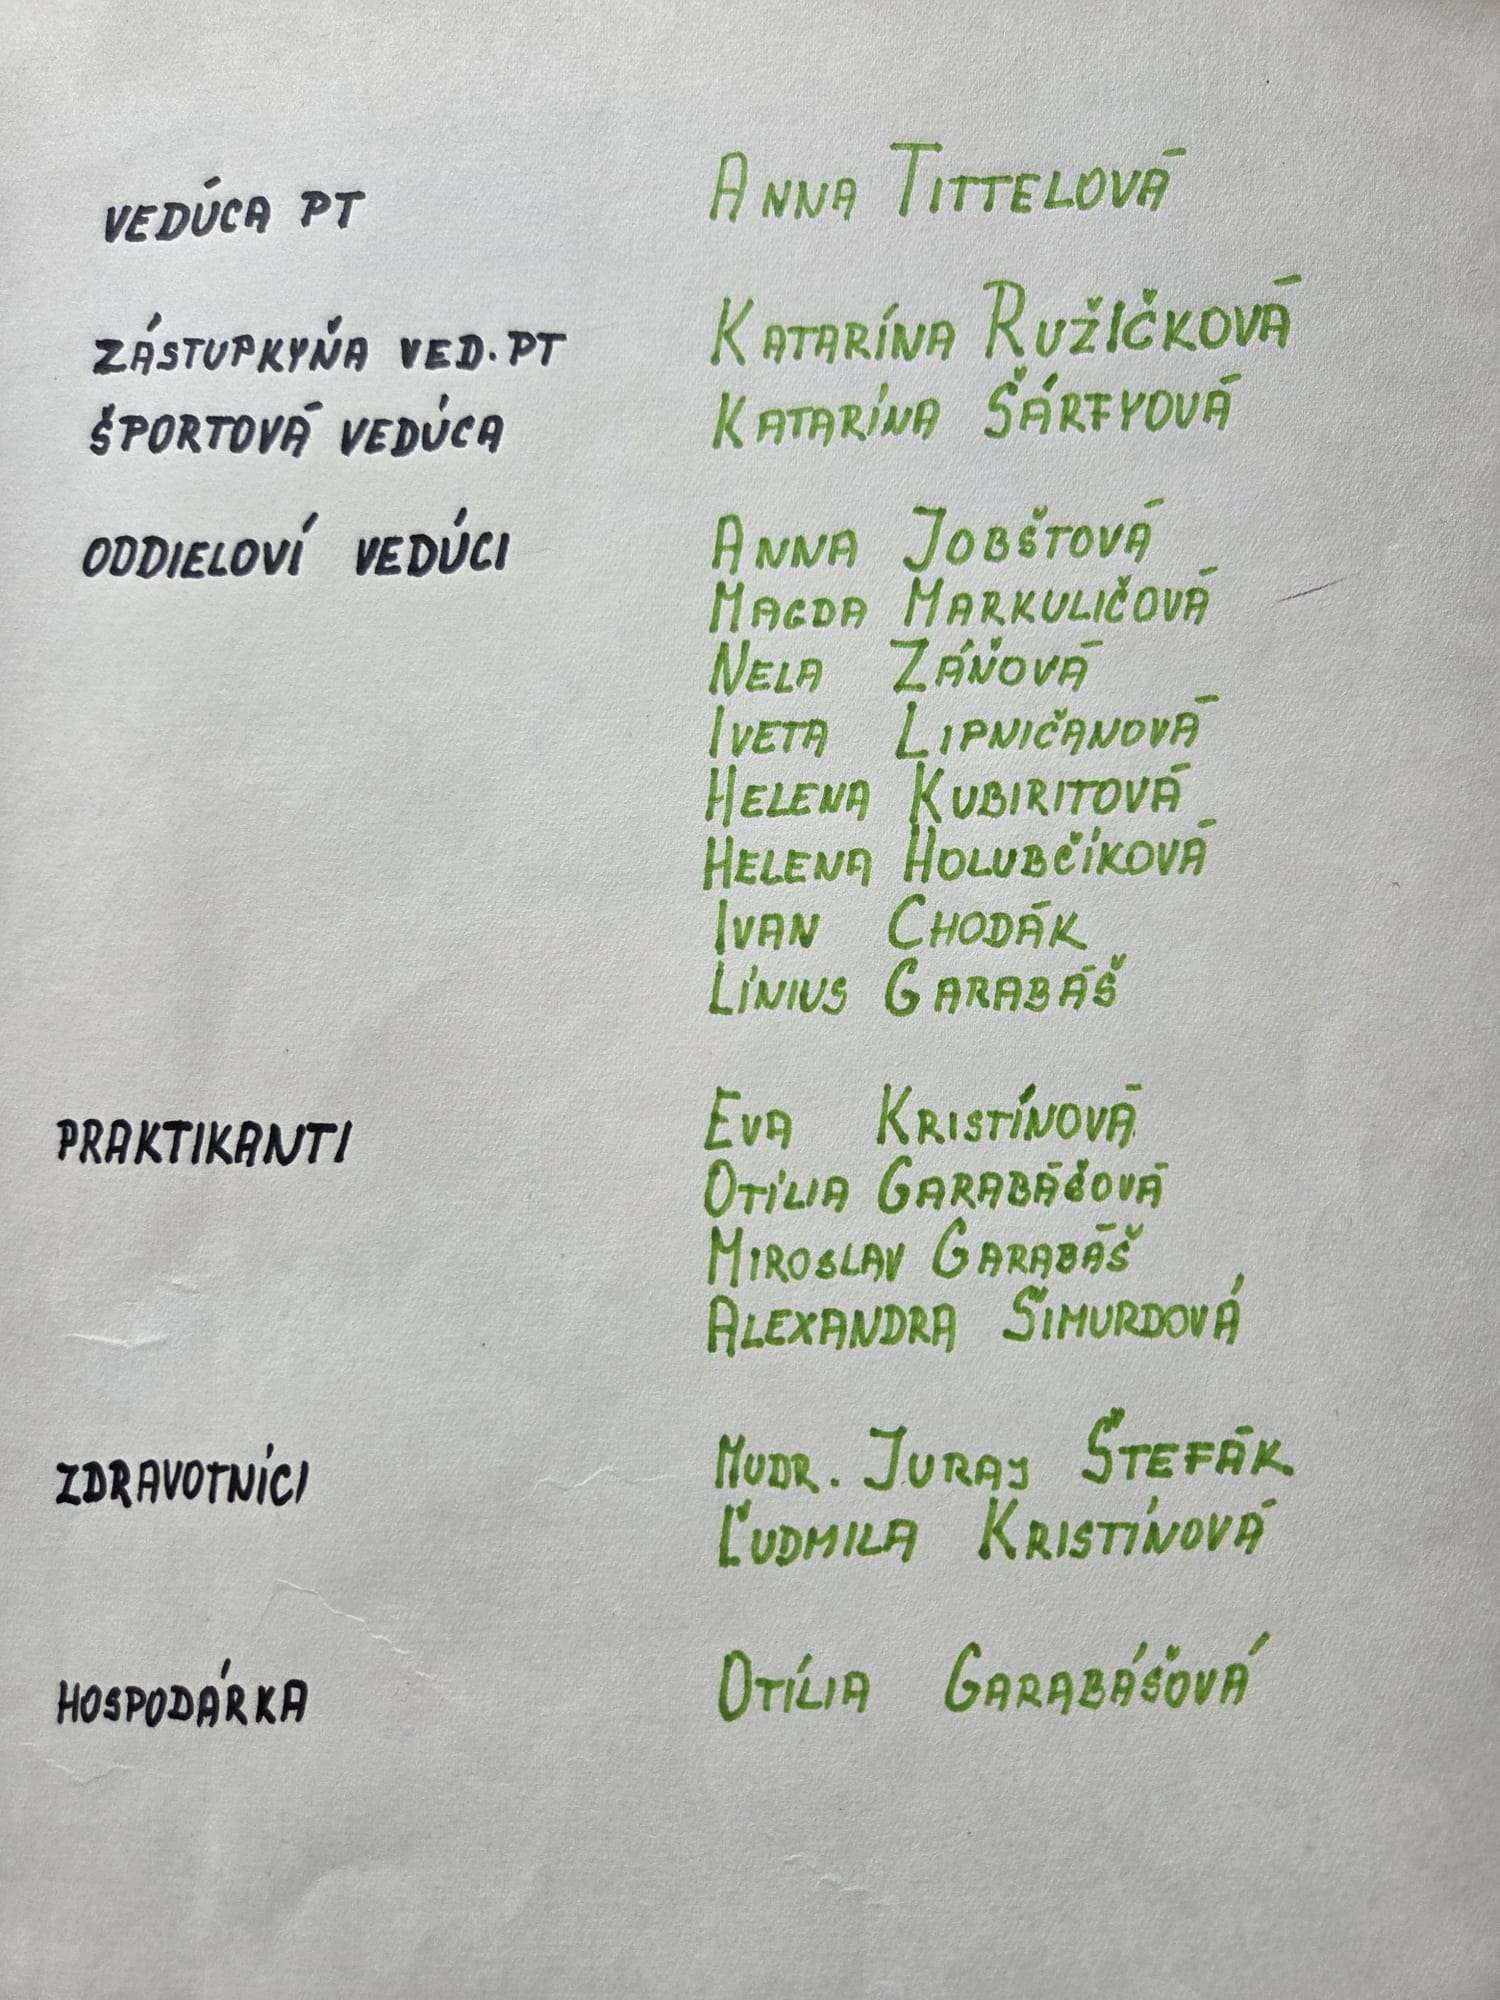 VEDÚCA PT ANNA TITTELOVÁ
ZÁSTUPKYŇA VED. PT KATARÍNA RUŽIČKOVÁ
ŠPORTOVÁ VEDÚCA KATARÍNA ŠÁRFYOVÁ
ODDIELOVÍ VEDÚCI ANNA JOBŠTOVÁ
MAGDA MARKULIČOVÁ
NELA ZÁŇOVÁ
IVETA LIPNIČANOVÁ
HELENA KUBIRITOVÁ
HELENA HOLUBČÍKOVÁ
IVAN CHODÁK
LÍNIUS GARABÁŠ
PRAKTIKANTI EVA KRISTÍNOVÁ
OTÍLIA GARABÁŠOVÁ
MIROSLAV GARABÁŠ
ALEXANDRA ŠIMURDOVÁ
ZDRAVOTNÍCI MUDR. JURAJ ŠTEFÁK
ĽUDMILA KRISTÍNOVÁ
HOSPODÁRKA OTÍLIA GARABÁŠOVÁ